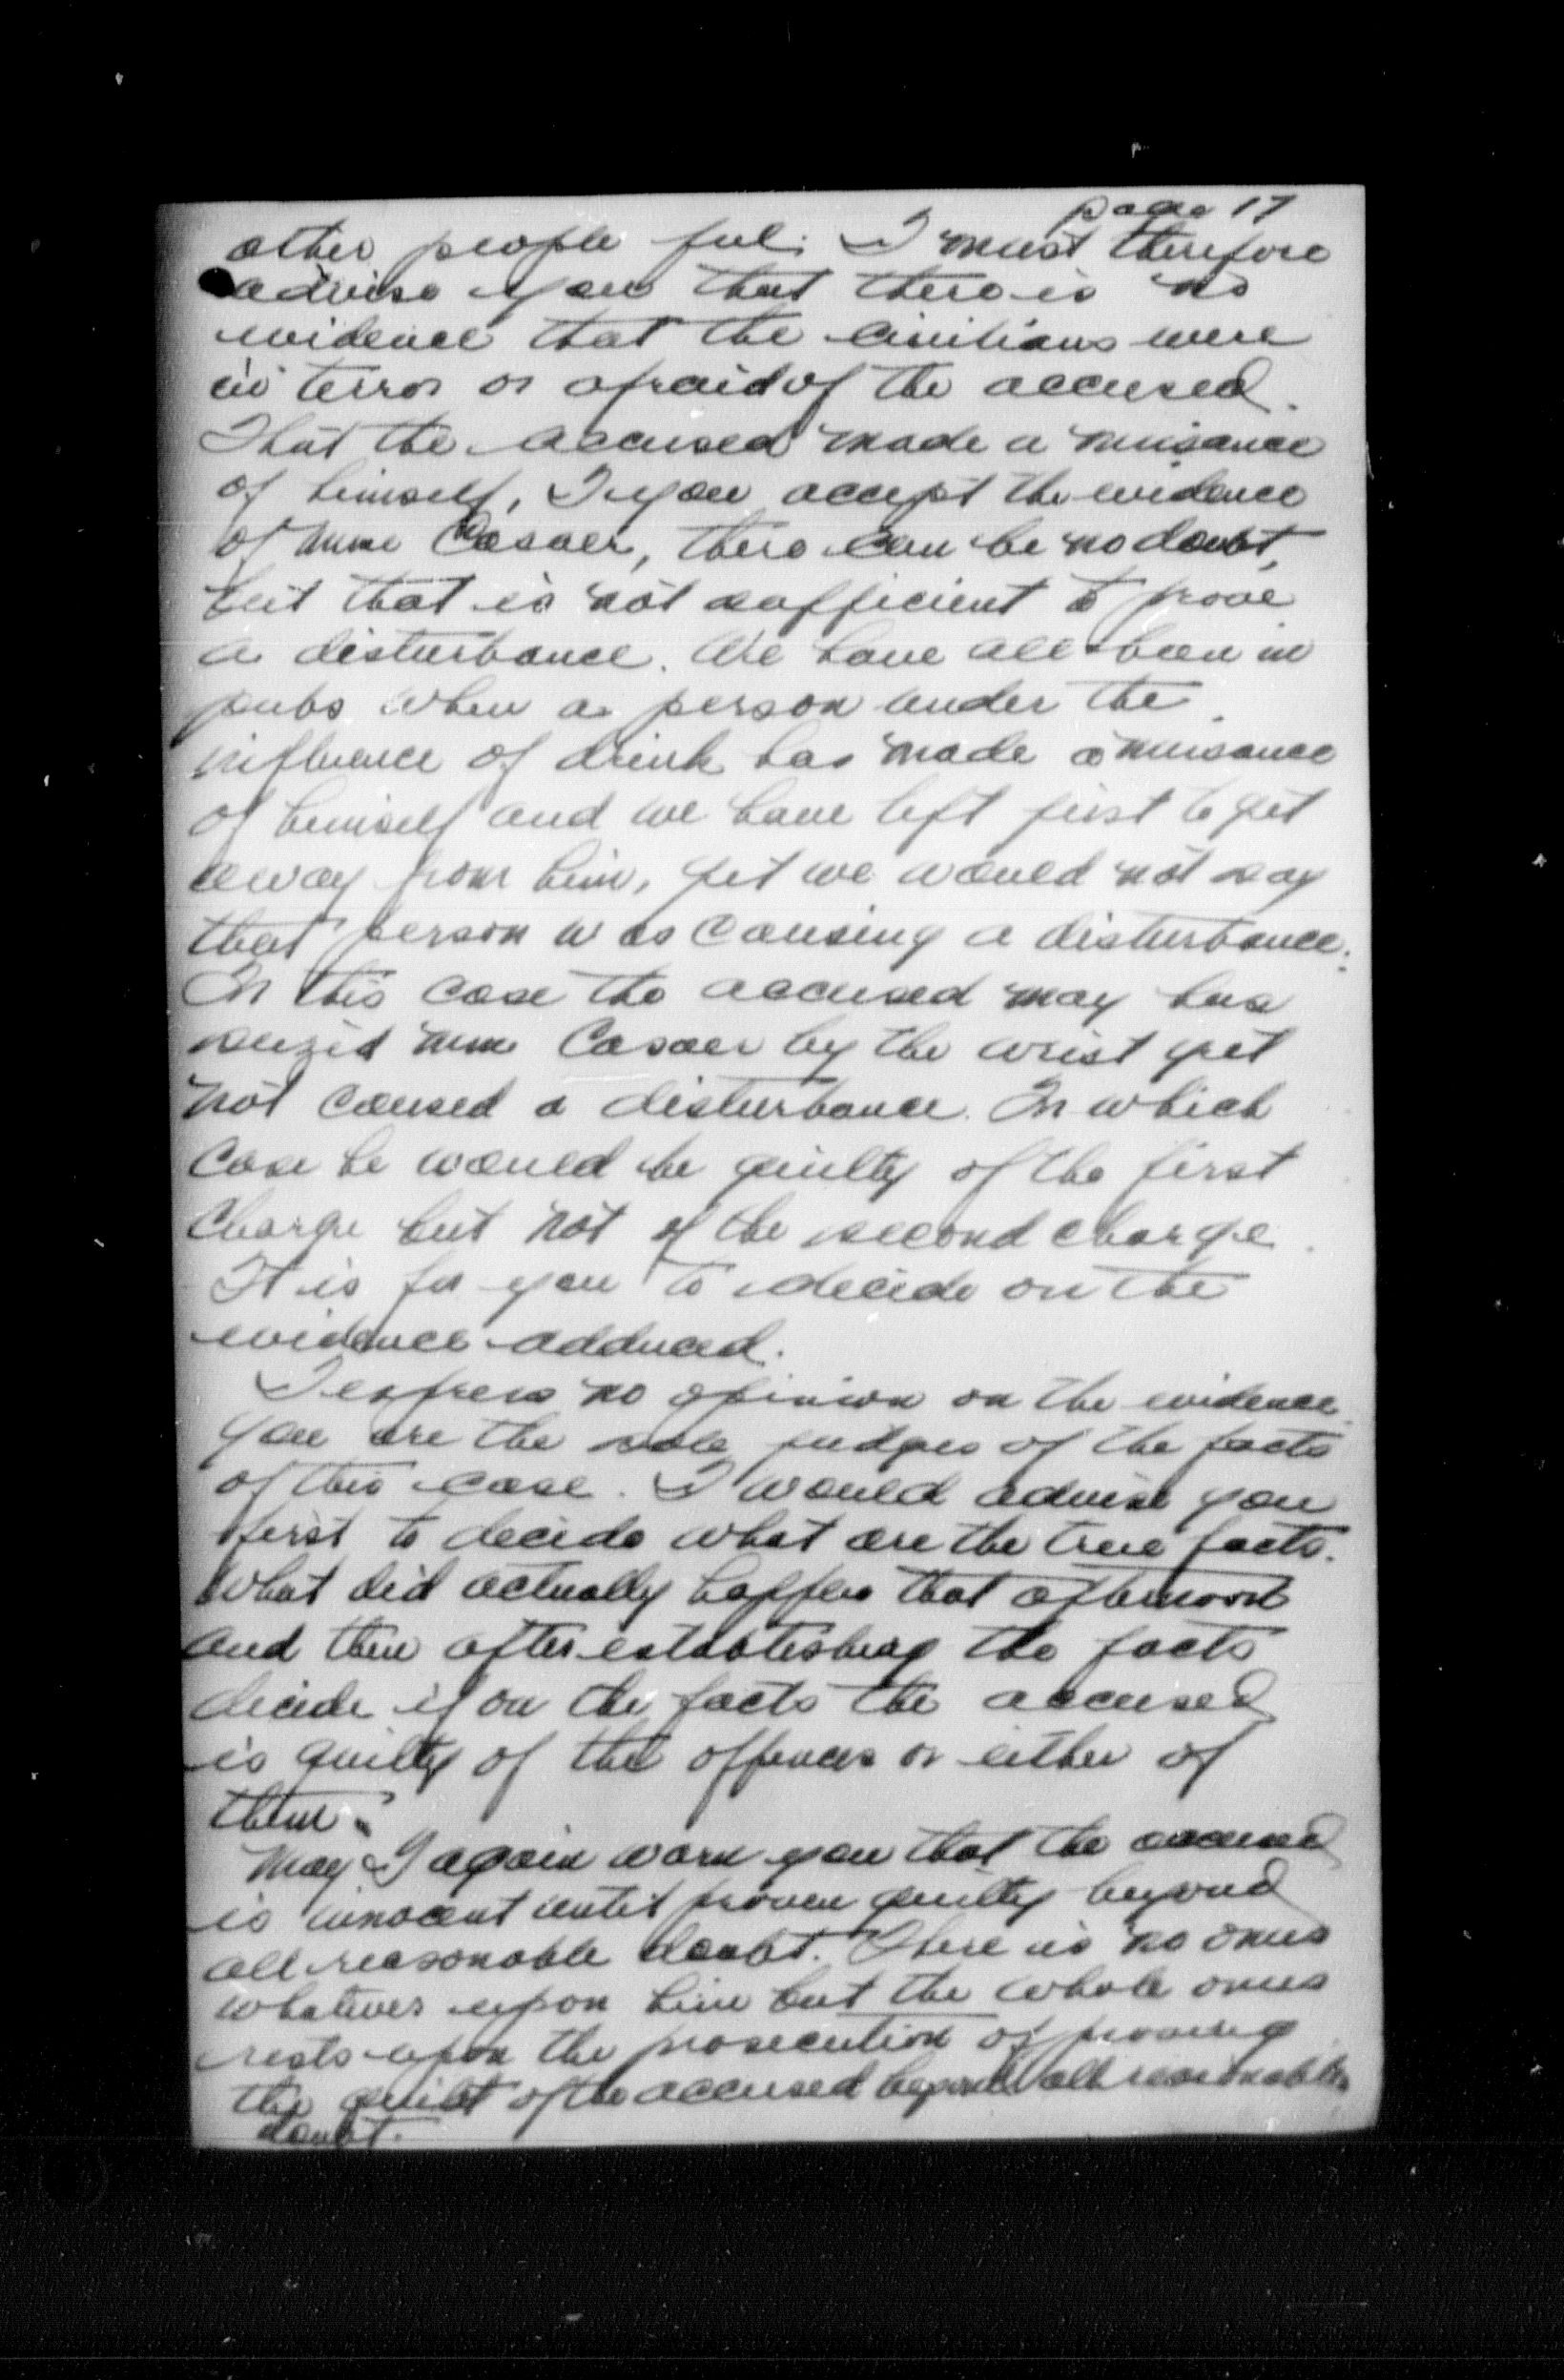 page 17
other people feel. I must therefore
advise you that there is no
evidence that the civilians were
in terror or afraid of the accused.
That the accused made a nuisance
of himself, If you accept the evidence
of Mme Casaer, there can be no doubt,
but that is not sufficient to prove
a disturbance. We have all been in
pubs when a person under the
influence of drink has made a nuisance
of himself and we have left just to get
away from him, yet we would not say
that person was causing a disturbance.
In this case the accused may have
seized Mme Casaer by the wrist yet
not caused a disturbance. In which
case he would be guilty of the first
charge but not of the second charge.
It is for you to decide on the
evidence adduced.
I express no opinion on the evidence
you are the sole judges of the facts
of this case. I would advise you
first to decide what are the true facts.
What did actually happen that afternoon
and then after establishing the facts
decide if on the facts the accused
is guilty of the offences or either of
them.
May I again warn you that the accused
is innocent until proven guilty beyond
all reasonable doubt. There is no onus
whatever upon him but the whole onus
rests upon the prosecution of proving
the guilt of the accused beyond all reasonable
doubt.